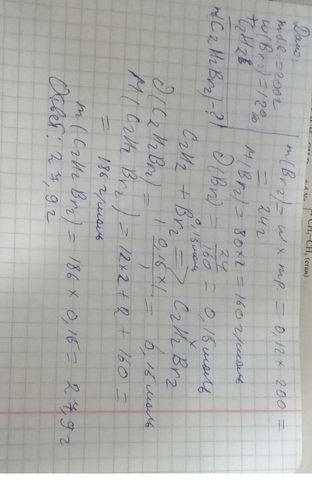 Дано:
mр-ра = 200г
w(Br2) = 12%
+ C2H2
m(C2H2Br2) - ?
m(Br2) = w × mр = 0,12 × 200 =
= 24г
M(Br2) = 80×2 = 160 г/моль
ν(Br2) = 24/160 = 0,15 моль
0,15 моль x
C2H2 + Br2 => C2H2Br2
ν(C2H2Br2) = 0,15×1/1 = 0,15 моль
M(C2H2Br2) = 12×2+2+160 =
= 186 г/моль
m(C2H2Br2) = 186 × 0,15 = 27,9г
Ответ: 27,9г